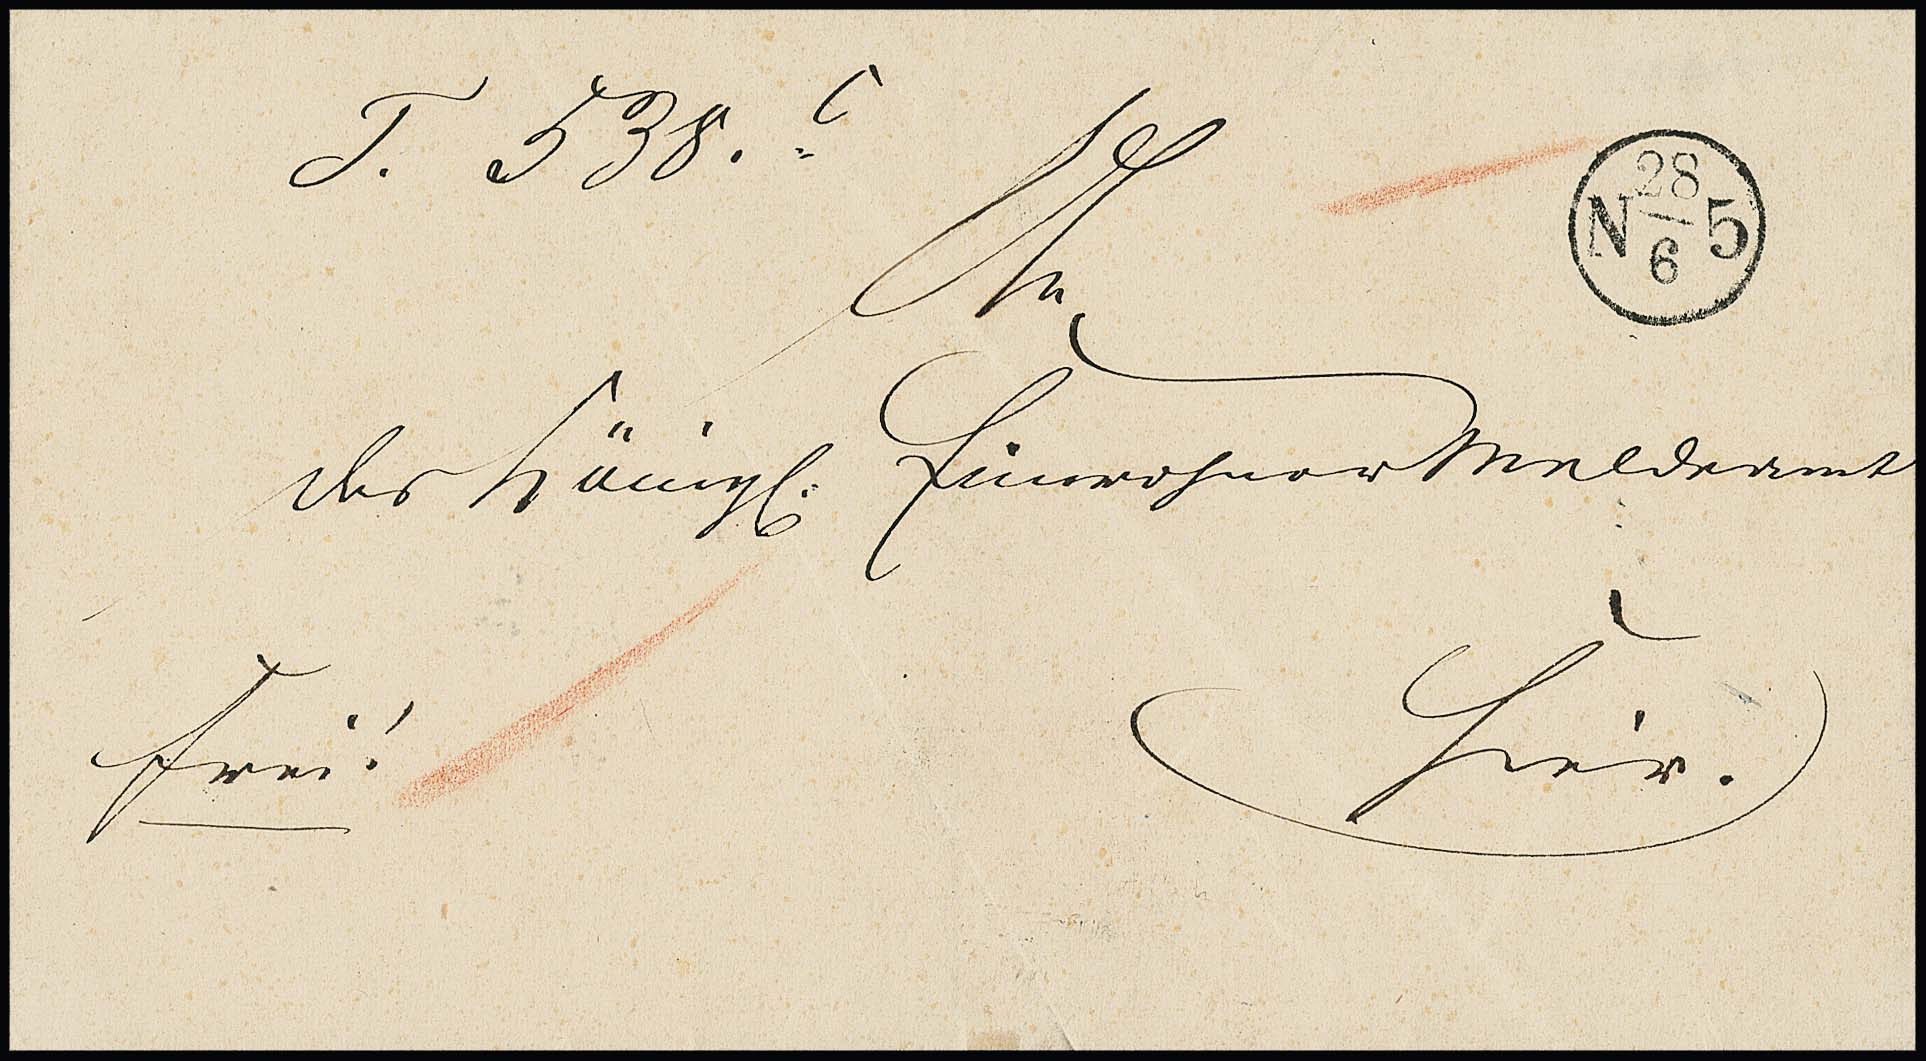 T. 538. c
28
N 5
6
An
das Königl: Einwohner Meldeamt
frei!
Hier.